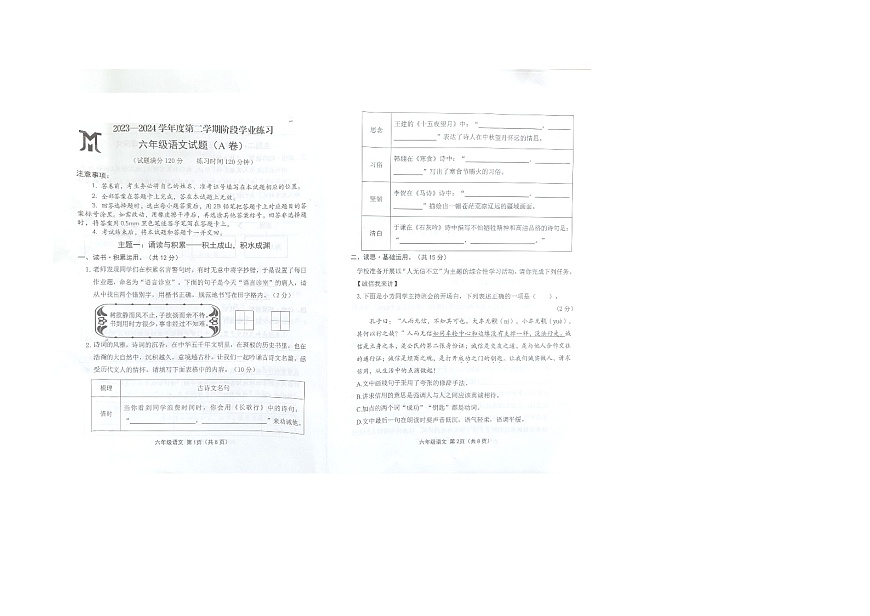 2023—2024 学年度第二学期阶段学业练习
六年级语文试题（A 卷）
（试题满分 120 分 练习时间 120 分钟）
注意事项：
1. 答卷前，考生务必将自己的姓名、准考证号填写在本试题相应的位置。
2. 全部答案在答题卡上完成，答在本试题上无效。
3. 回答选择题时，选出每小题答案后，用 2B 铅笔把答题卡上对应题目的答
案标号涂黑。如需改动，用橡皮擦干净后，再选涂其他答案标号。回答非选择题
时，将答案用 0.5mm 黑色笔迹签字笔写在答题卡上。
4. 考试结束后，将本试题和答题卡一并交回。
主题一：诵读与积累——积土成山，积水成渊
一、读书·积累运用。（共 12 分）
1. 老师发现同学们在积累名言警句时，有时无意中将字抄错，于是设置了每日
作业题，命名为“语言诊室”。下面的句子是今天“语言诊室”的病人，请
从中找出两个错别字，用楷书正确、规范地书写在田字格内。（2 分）
树欲静而风不止，子欲孩而亲不待。
书到用时方很少，事非经过不知难。
2. 诗词的风雅，诗词的沉香，在中华五千年文明里，在斑驳的历史书里，也在
浩瀚的大自然中，沉积越久，意境越古朴。让我们一起吟诵古诗文名篇，感
受历代文人的情怀，请填写下面表格中的内容。（10 分）
梳理 古诗文名句
惜时 当你看到同学浪费时间时，你会用《长歌行》中的诗句：
“ ， ”来劝诫他。
六年级语文 第 1页（共 8 页）
思念 王建的《十五夜望月》中：“ ，
”表达了诗人在中秋望月怀远的情思。
习俗 韩翃在《寒食》诗中：“ ，
”写出了寒食节赐火的习俗。
坚韧 李贺在《马诗》诗中：“ ，
”描绘出一幅苍茫荒凉辽远的疆域画面。
清白 于谦在《石灰吟》诗中描写不怕牺牲精神和高洁品质的诗句是：
“ ， 。”
二、读思·基础运用。（共 15 分）
学校准备开展以“人无信不立”为主题的综合性学习活动，请你完成下列任务。
【诚信我来讲】
3. 下面是小方同学主持班会的开场白，下列表述正确的一项是（ ）。
（2 分）
孔子曰：“人而无信，不知其可也。大车无輗（ní），小车无軏（yuè），
其何以行之哉？”人而无信如同车轮中心和边缘没有支持一样，没法行走。诚
信是立身之本，是公民的第二张身份证；诚信是交友之道，是与他人合作交往
的通行证；诚信是经商之魂，是打开成功之门的钥匙。让我们诚实做人，讲求
信用，从生活中的点滴做起！
A.文中画线句子采用了夸张的修辞手法。
B.讲求信用的意思是强调人与人之间应该真诚相待。
C.加点的两个词“成功”“钥匙”都是动词。
D.文中最后一句在朗读时要声音低沉，语气轻柔，语调平缓。
六年级语文 第 2页（共 8 页）